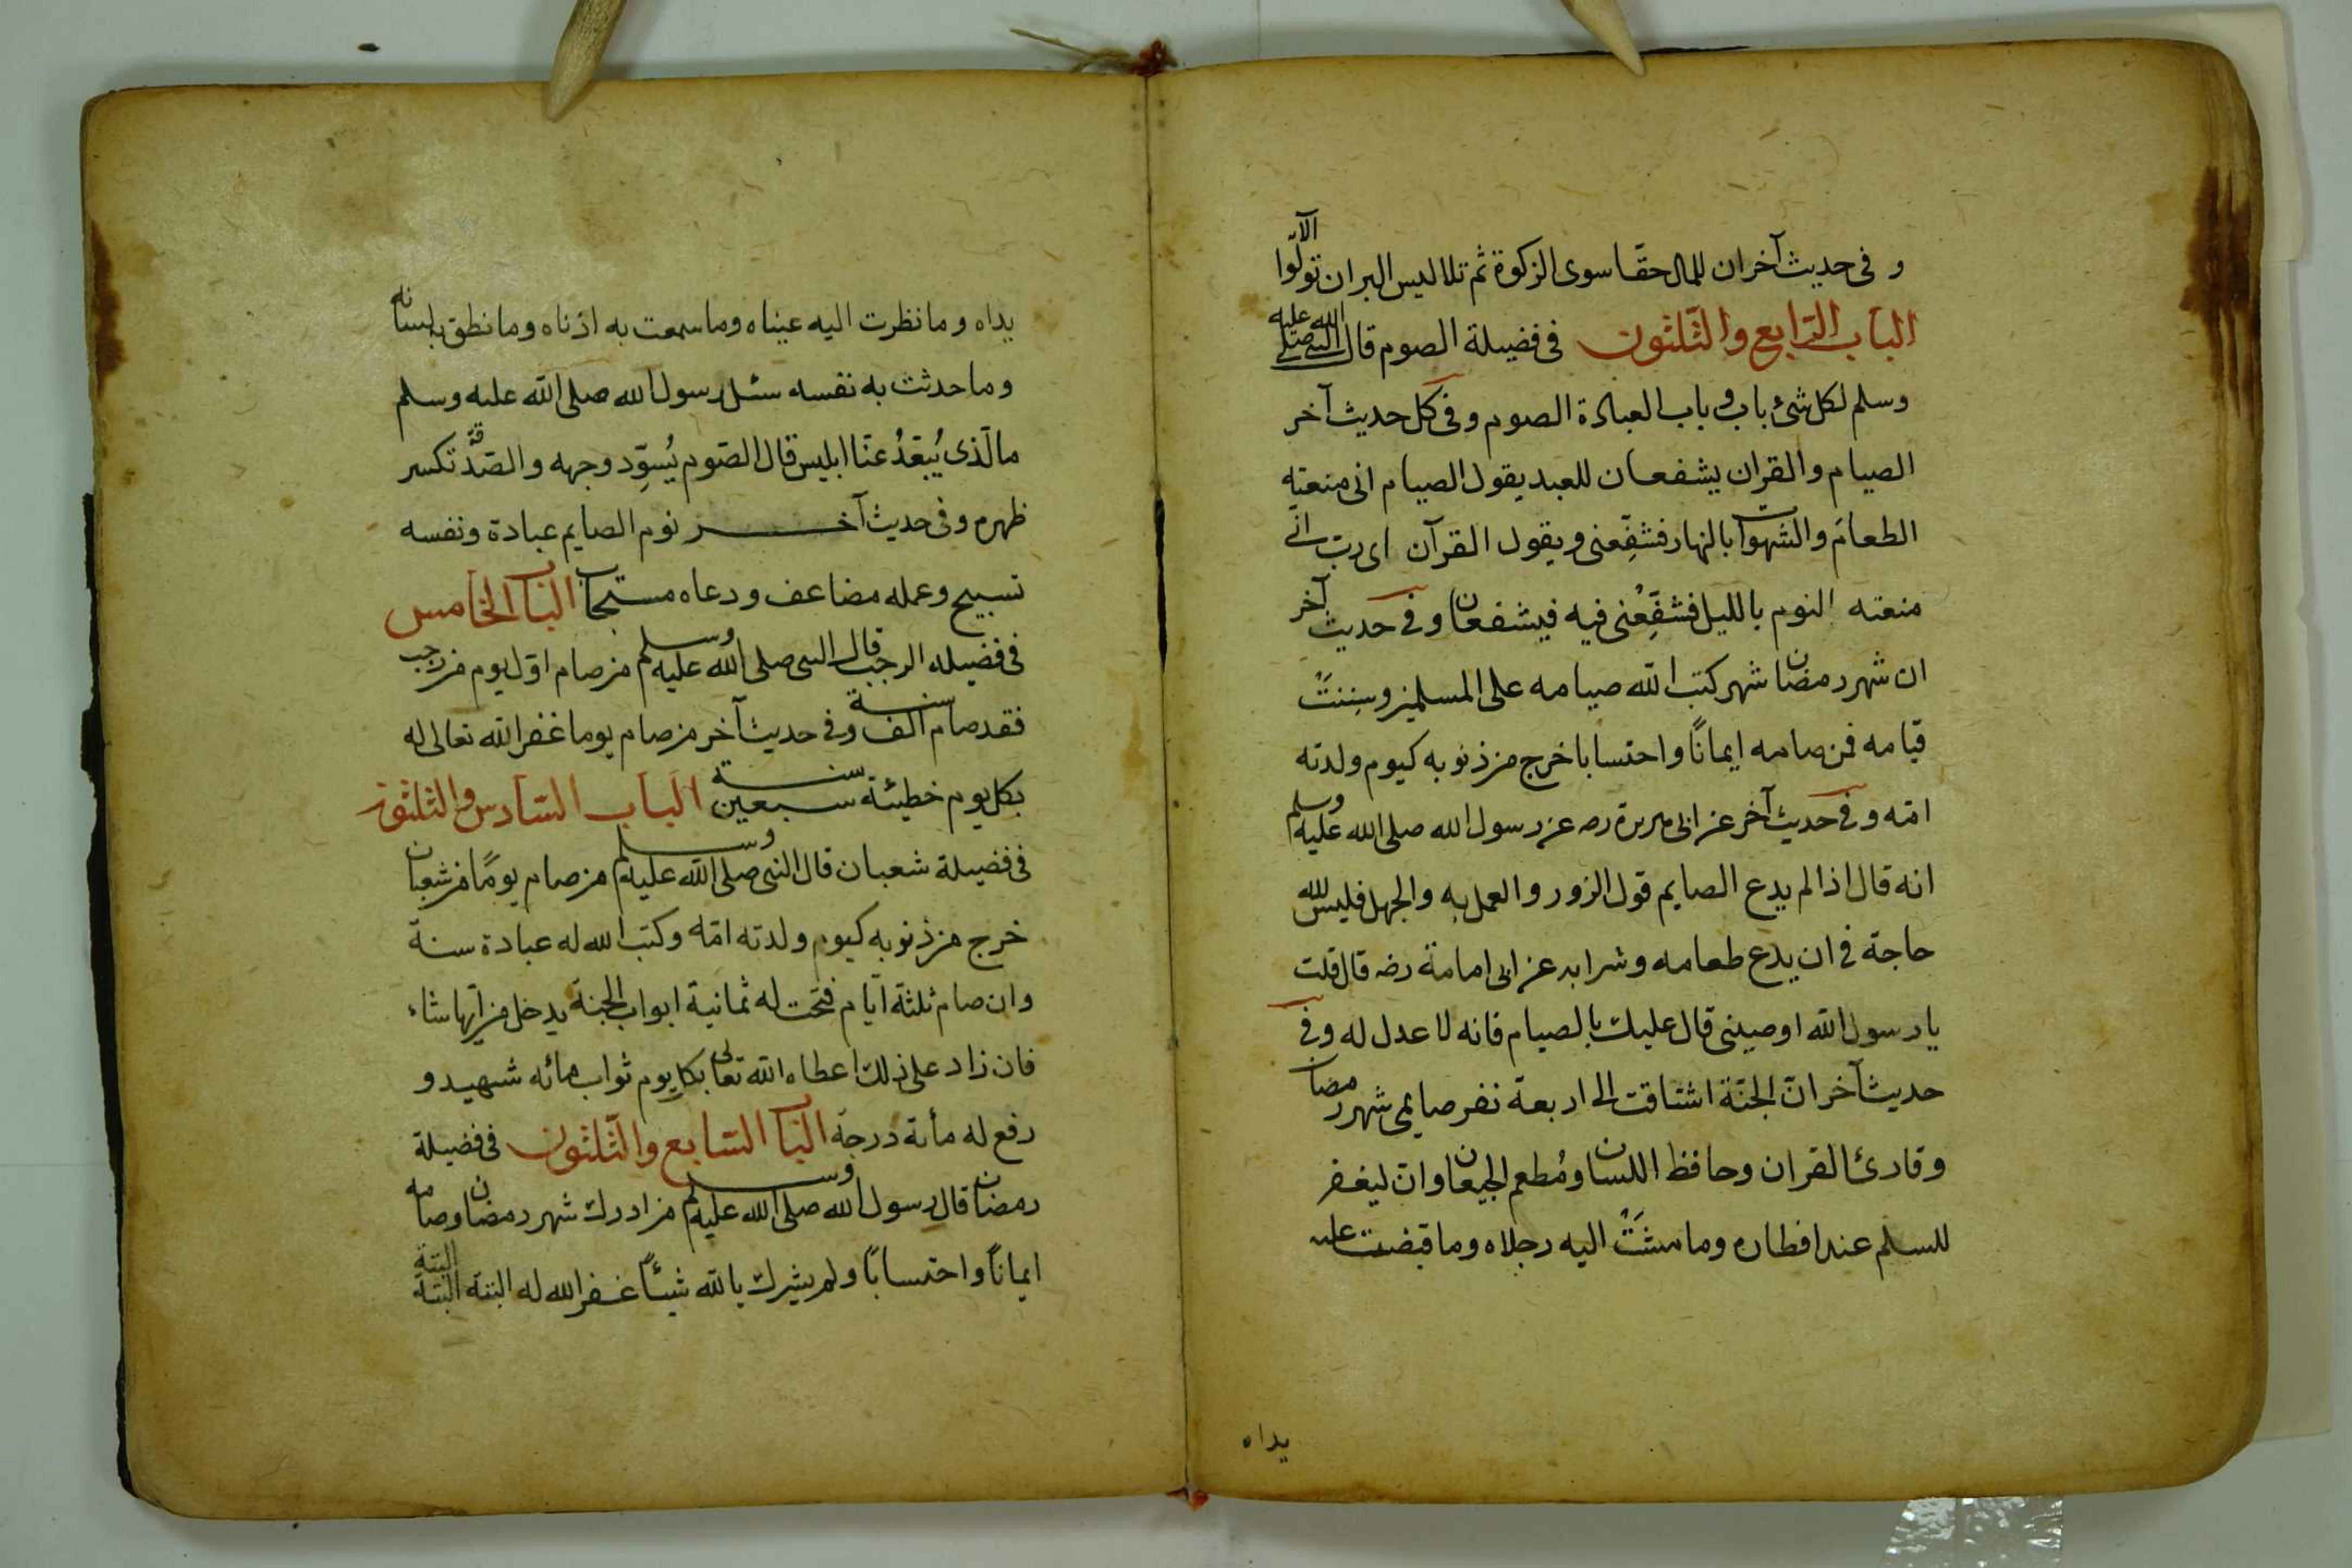 و فى حديث آخر ان للمال حقا سوى الزكوة ثم تلا ليس البر ان تولّوا الآية
الباب الرابع والثلثون فى فضيلة الصوم قال النبى صلى الله عليه
وسلم لكل شئ باب و باب العبادة الصوم و فى كل حديث آخر
الصيام والقران يشفعان للعبد يقول الصيام انى منعته
الطعام والشهوات بالنهار فشفّعنى ويقول القرآن اى رب انى
منعته النوم بالليل فشفّعنى فيه فيشفعان و فى حديث آخر
ان شهر رمضان شهر كتب الله صيامه على المسلمين وسننت
قيامه فمن صامه ايمانًا واحتسابا خرج من ذنوبه كيوم ولدته
امّه و فى حديث آخر عن ابى هريرة رضه عن رسول الله صلى الله عليه وسلم
انه قال اذا لم يدع الصايم قول الزور والعمل به والجهل فليس لله
حاجة فى ان يدع طعامه وشرابه عن ابى امامة رضه قال قلت
يا رسول الله اوصينى قال عليك بالصيام فانه لا عدل له و فى
حديث آخر انّ الجنّة اشتاقت الى اربعة نفر صايمى شهر رمضان
وقارئ القران وحافظ اللسان ومُطعم الجيعان وان ليغفر
للمسلم عند افطاره وما مشت اليه رجلاه وما قبضت عليه
يداه
يداه و ما نظرت اليه عيناه وما سمعت به اذناه وما نطق به لسانه
وما حدثت به نفسه سئل رسول الله صلى الله عليه وسلم
ما لّذى يُبَعّدُ عنّا ابليس قال الصّوم يُسوِّد وجهه والصّدقة تكسر
ظهره و فى حديث آخر نوم الصايم عبادة ونفسه
تسبيح وعمله مضاعف ودعاه مستجاب الباب الخامس
فى فضيله الرجب قال النبى صلى الله عليه وسلم من صام اوّل يوم من رجب
فقد صام الف سنة و فى حديث آخر من صام يوما غفر الله تعالى له
بكل يوم خطيئة سبعين سنة الباب السّادس والثلثون
فى فضيلة شعبان قال النبى صلى الله عليه وسلم من صام يومًا من شعبان
خرج من ذنوبه كيوم ولدته امّه وكتب الله له عبادة سنة
وان صام ثلثة ايّام فتحت له ثمانية ابواب الجنة يدخل من ايّها شاء
فان زاد على ذلك اعطاه الله تعالى بكل يوم ثواب مائه شهيد و
رفع له مأئة درجة الباب السّابع والثّلثون فى فضيلة
رمضان قال رسول الله صلى الله عليه وسلم من ادرك شهر رمضان وصامه
ايمانًا واحتسابًا ولم يشرك بالله شيئًا غفر الله له البتة البتة البتة